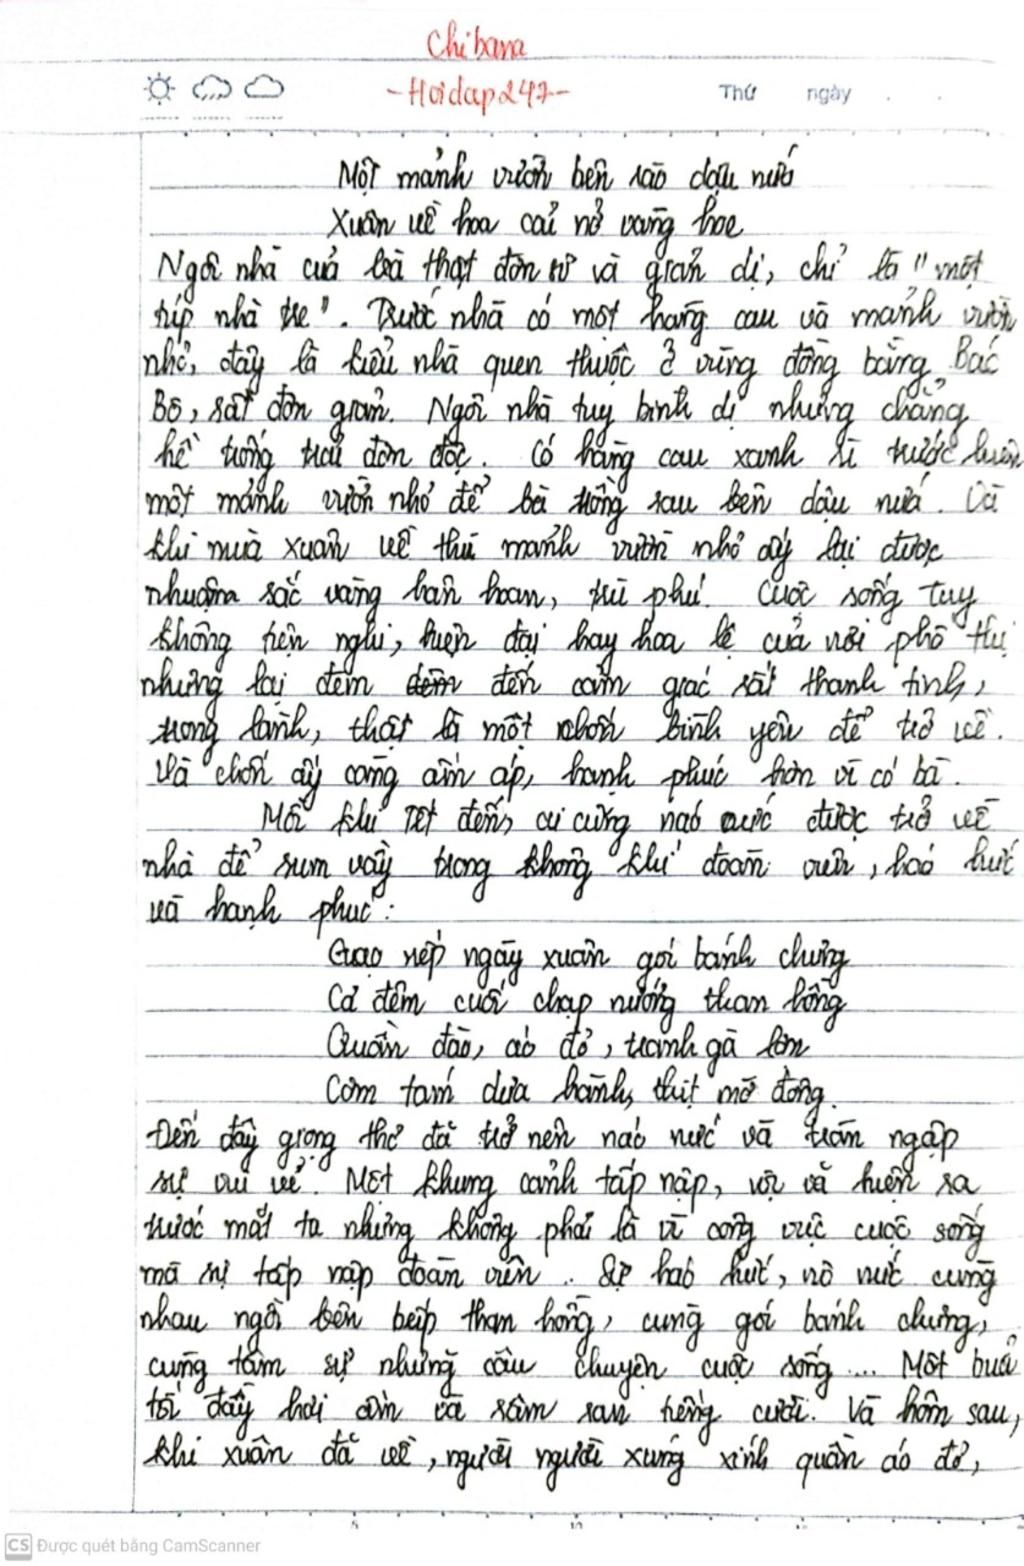 Chibana
-Hoidap247-
Thứ ngày
Một mảnh vườn bên rào dậu nứa
Xuân về hoa cải nở vàng hoe
Ngôi nhà của bà thật đơn sơ và giản dị, chỉ là "một
túp nhà tre". Trước nhà có một hàng cau và mảnh vườn
nhỏ, đây là kiểu nhà quen thuộc ở vùng đồng bằng Bắc
Bộ, rất đơn giản. Ngôi nhà tuy bình dị nhưng chẳng
hề trống trải đơn độc. Có hàng cau xanh rì trước hiên
một mảnh vườn nhỏ để bà trồng rau bên dậu nứa. Và
khi mùa xuân về thì mảnh vườn nhỏ ấy lại được
nhuộm sắc vàng hân hoan, trù phú. Cuộc sống tuy
không tiện nghi, hiện đại hay hoa lệ của nơi phố thị
nhưng lại đem đến cảm giác rất thanh tịnh,
trong lành, thật là một chốn bình yên để trở về.
Và chốn ấy càng ấm áp, hạnh phúc hơn vì có bà.
Mỗi khi Tết đến, ai cũng náo nức được trở về
nhà để sum vầy trong không khí đoàn viên, háo hức
và hạnh phúc:
Gạo nếp ngày xuân gói bánh chưng
Cả đêm cuối chạp nướng than hồng
Quần đào, áo đỏ, tranh gà lợn
Cơm tám dưa hành, thịt mỡ đông.
Đến đây giọng thơ đã trở nên náo nức và tràn ngập
sự vui vẻ. Một khung cảnh tấp nập, vội vã hiện ra
trước mắt ta nhưng không phải là vì công việc cuộc sống
mà sự tấp nập đoàn viên. Sự háo hức, nô nức cùng
nhau ngồi bên bếp than hồng, cùng gói bánh chưng,
cùng tâm sự những câu chuyện cuộc sống... Một buổi
tối đầy hơi ấm và rôm rả tiếng cười. Và hôm sau,
khi xuân đã về, người người xúng xính quần áo đỏ,
CS Được quét bằng CamScanner